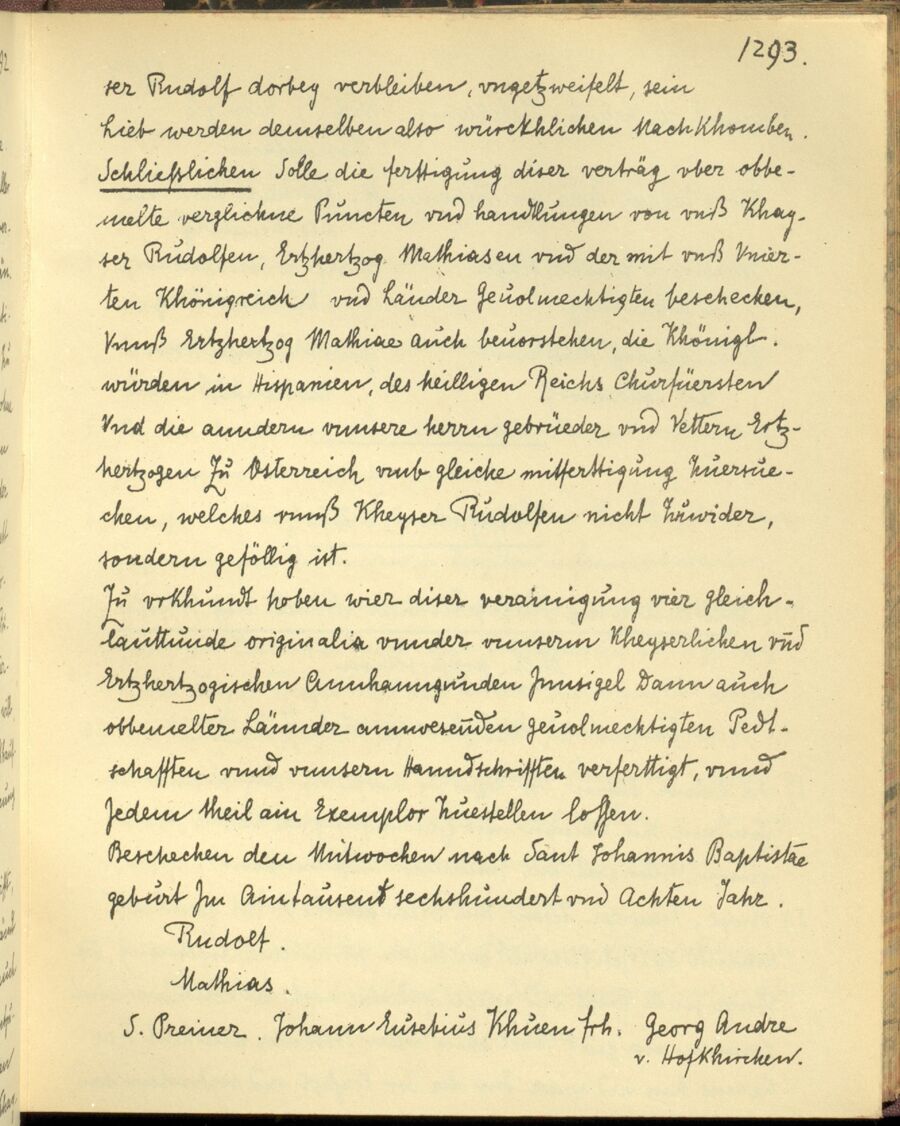 1293.
ser Rudolf dorbey verbleiben, vngetzweifelt, sein
Lieb werden demselben also würckhlichen Nachkhomben.
Schließlichen Solle die ferttigung diser verträg vber obbe-
melte verglichne Puncten vnd handlungen von vnß Khay-
ser Rudolfen, Ertzhertzog Mathiasen vnd der mit vnß Vnier-
ten Khönigreich vnd Länder Geuolmechtigten beschecken,
Vnnß Ertzhertzog Mathiae auch beuorstehen, die Khönigl.
würden in Hispanien, des heilligen Reichs Churfüersten
Vnd die anndern vnnsere herrn gebrüeder vnd Vettern Ertz-
hertzogen Zu Österreich vmb gleiche mitferttigung Zuersue-
chen, welches vnnß Kheyser Rudolfen nicht Zuwider,
sondern geföllig ist.
Zu vrkhundt hoben wier diser verainigung vier gleich-
lauttunde originalia vnnder vnnserm Kheyserlichen vnd
Ertzhertzogischen Annhanngunden Jnnsigel Dann auch
obbemelter Lännder annwesenden geuolmechtigten Pedt-
schafften vnnd vnnsern Hanndschrifften verferttigt, vnnd
Jedem theil ain Exemplor Zuestellen lossen.
Beschechen den Mitwochen nach Sant Johannis Baptistae
geburt Jm Aintausent sechshundert vnd Achten Jahr.
Rudolf.
Mathias.
S. Preiner. Johann Eusebius Khuen frh. Georg Andre
v. Hofkhirchen.